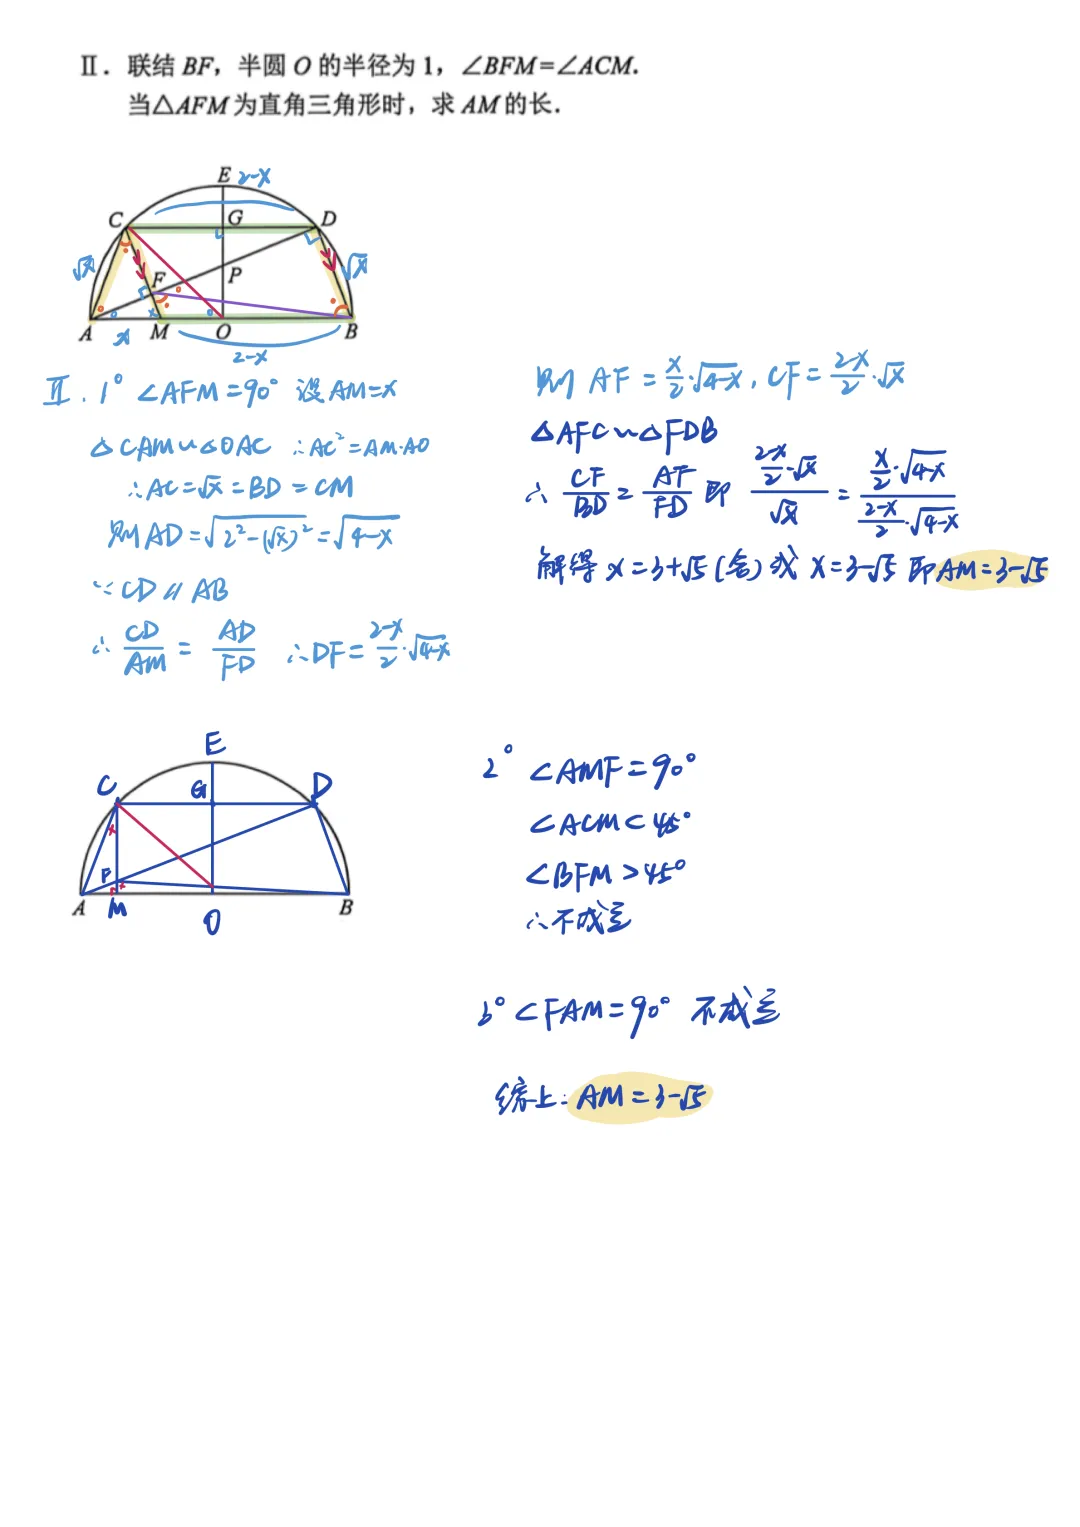 Ⅱ. 联结 BF，半圆 O 的半径为 1，∠BFM=∠ACM.
当△AFM 为直角三角形时，求 AM 的长.
E 2-x
C G D
√x F P √x
A x M O B
2-x
Ⅱ. 1° ∠AFM=90° 设AM=x
△CAM∽△OAC ∴AC²=AM·AO
∴AC=√x=BD=CM
则AD=√(2²-(√x)²)=√(4-x)
∵CD∥AB
∴CD/AM=AD/FD ∴DF=(2-x)/2·√(4-x)
则AF=x/2·√(4-x), CF=(2-x)/2·√x
△AFC∽△FDB
∴CF/BD=AF/FD 即 ((2-x)/2·√x)/√x=(x/2·√(4-x))/((2-x)/2·√(4-x))
解得x=3+√5(舍)或x=3-√5 即AM=3-√5
E
C G D
F
A M O B
2° ∠AMF=90°
∠ACM<45°
∠BFM>45°
∴不成立
3° ∠FAM=90° 不成立
综上:AM=3-√5